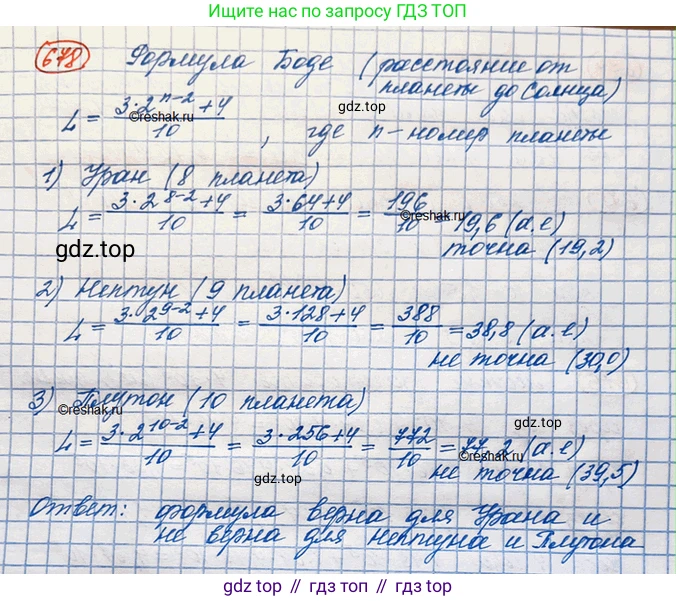 Ищите ответы по запросу ГДЗ ТОП
678 Формула Боде (расстояние от
планеты до Солнца)
L = (3·2^(n-2) + 4)/10, где n - номер планеты
©reshak.ru
gdz.top
1) Уран (8 планета)
L = (3·2^(8-2) + 4)/10 = (3·64 + 4)/10 = 196/10 = 19,6 (а.е)
©reshak.ru
точна (19,2)
gdz.top
2) Нептун (9 планета)
L = (3·2^(9-2) + 4)/10 = (3·128 + 4)/10 = 388/10 = 38,8 (а.е)
не точна (30,0)
3) Плутон (10 планета)
©reshak.ru
gdz.top
L = (3·2^(10-2) + 4)/10 = (3·256 + 4)/10 = 772/10 = 77,2 (а.е)
©reshak.ru
не точна (39,5)
gdz.top
Ответ: формула верна для Урана и
не верна для Нептуна и Плутона
gdz.top // гдз топ // gdz top // гдз.топ